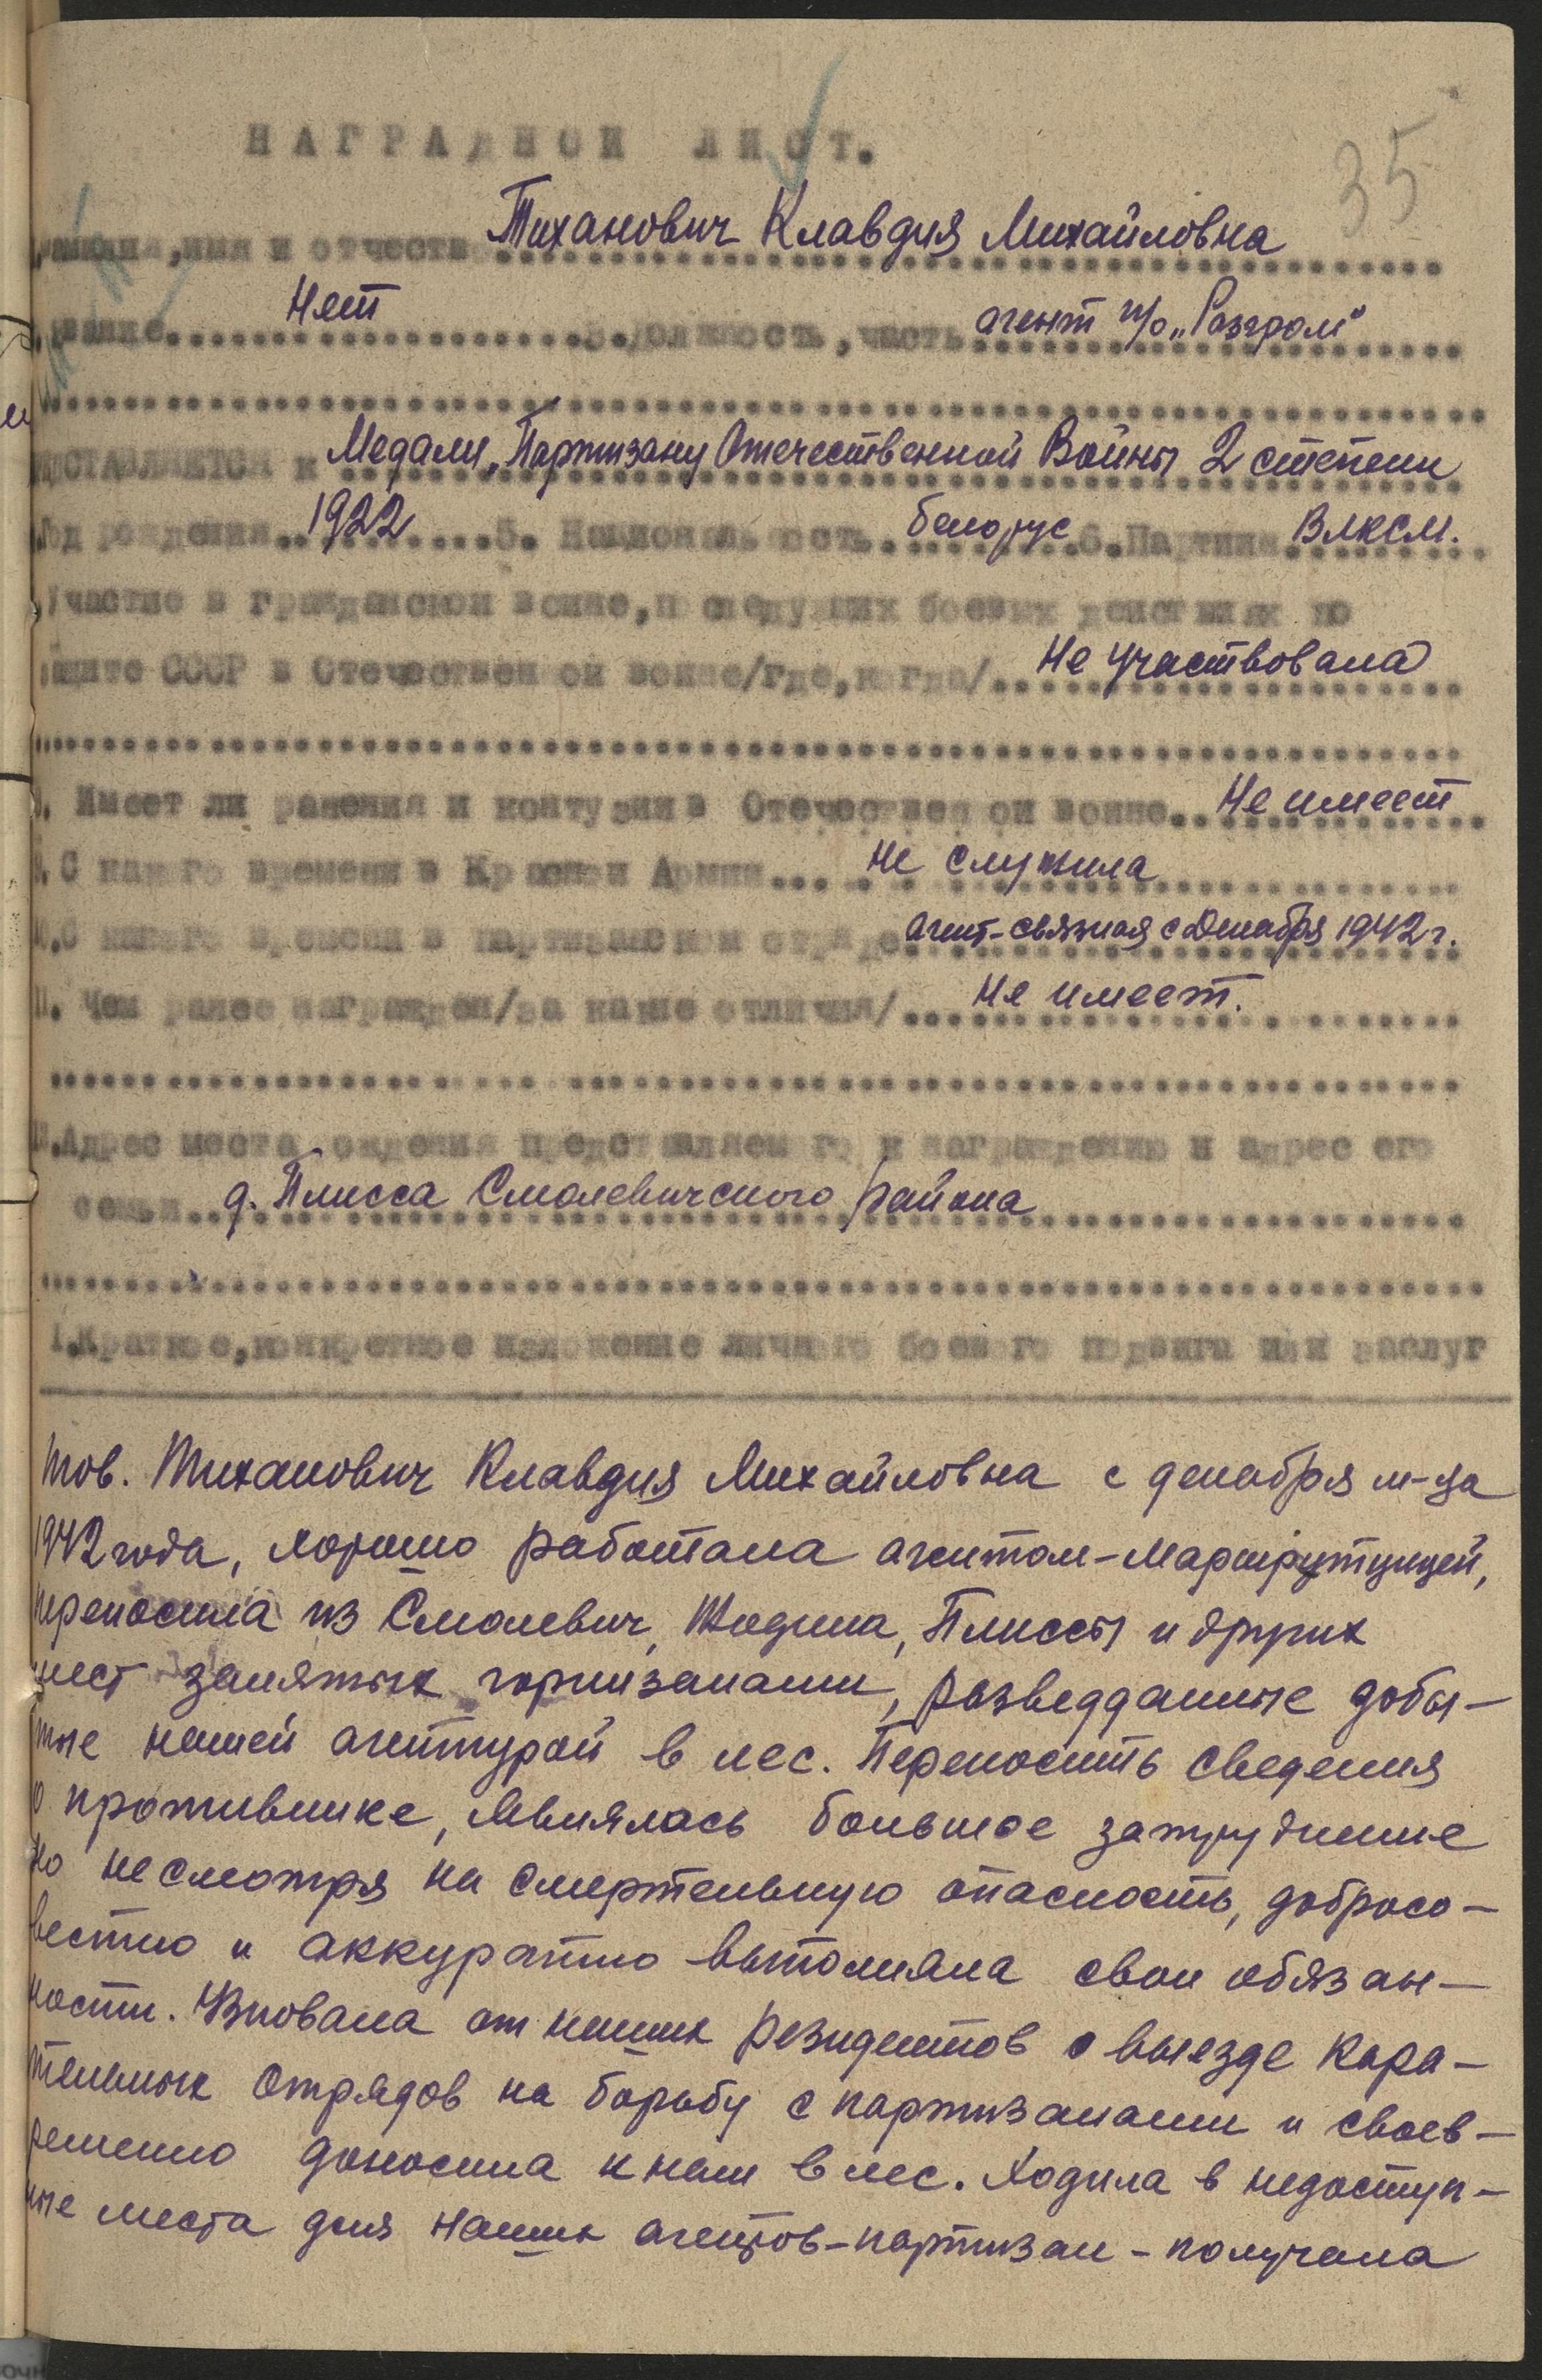 35
НАГРАДНОЙ ЛИСТ.
имя и отчество Тиханович Клавдия Михайловна
звание Нет Должность, часть агент п/о „Разгром"
представляется к Медали „Партизану Отечественной Войны 2 степени
Год рождения 1922 5. Национальность белорус 6. Партийн ВЛКСМ.
Участие в гражданской войне, последующих боевых действиях по
защите СССР в Отечественной войне/где, когда/ Не участвовала
8. Имеет ли ранения и контузии в Отечественной войне Не имеет
9. С какого времени в Красной Армии не служила
10. С какого времени в партизанском отряде агент-связная с Декабря 1942 г.
11. Чем ранее награжден/за какие отличия/ Не имеет.
12. Адрес места представляемого к награждению и адрес его
семьи д. Плисса Смолевичского района
I. Краткое, конкретное изложение личного боевого подвига или заслуг
Тов. Тиханович Клавдия Михайловна с декабря м-ца
1942 года, хорошо работала агентом-маршрутницей,
переносила из Смолевич, Жодина, Плиссы и других
мест занятых гарнизанами, разведданные добы-
тые нашей агентурой в лес. Переносить сведения
о противнике, являлась большое затруднение
но несмотря на смертельную опасность, добросо-
вестно и аккуратно выполняла свои обязан-
ности. Узновала от наших резидентов о выезде кара-
тельных отрядов на борьбу с партизанами и своев-
ременно доносила к нам в лес. Ходила в недоступ-
ные места для наших агентов-партизан - получала